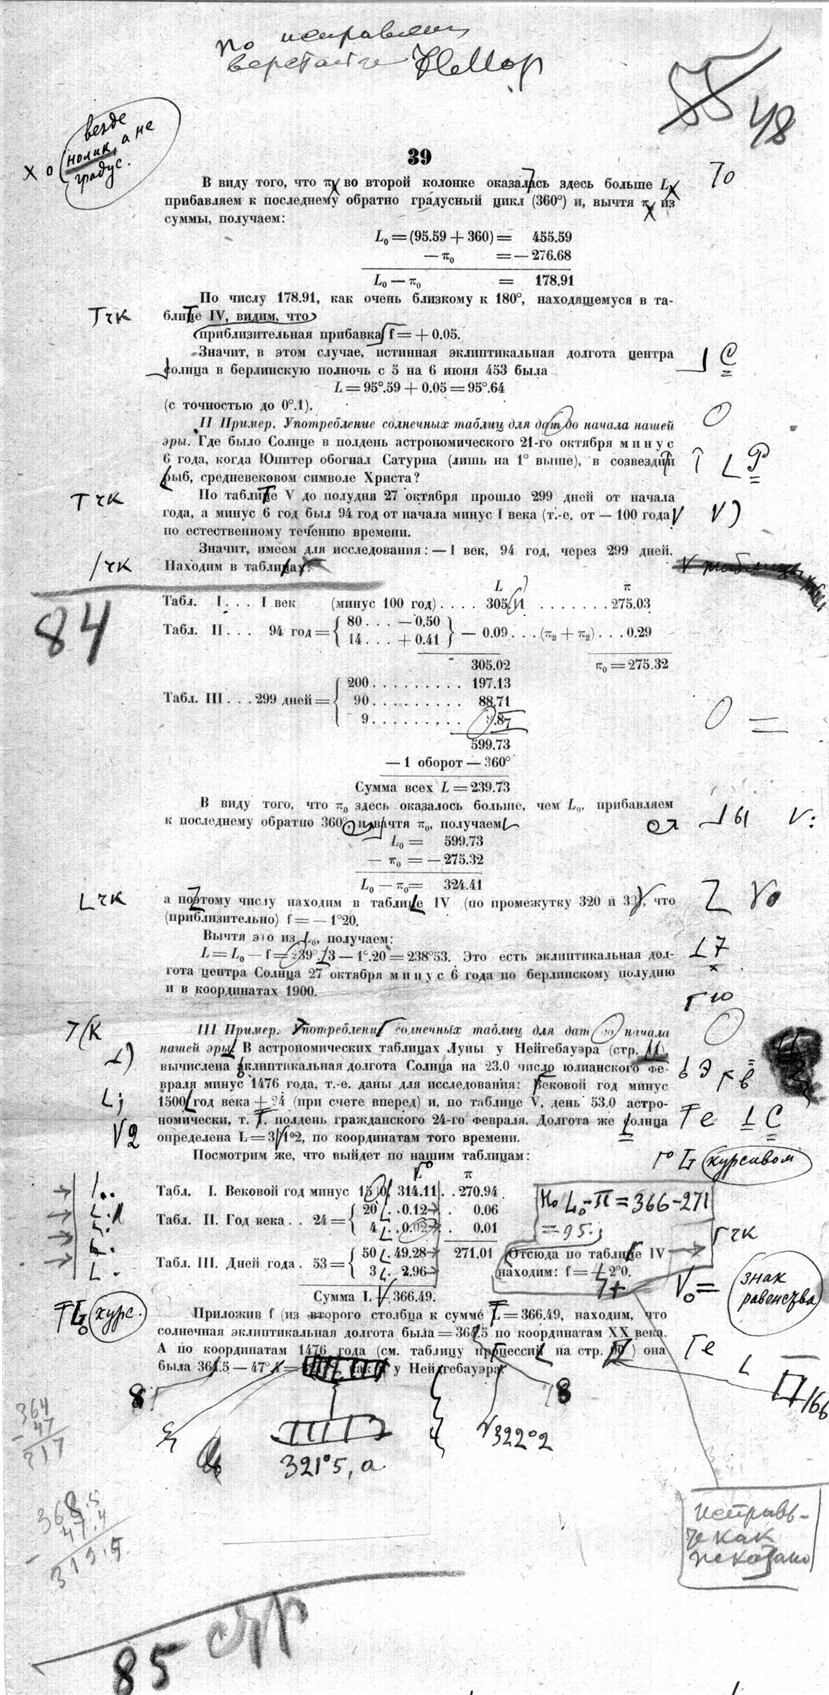 по исправлении
верстайте НМор
55 48
везде
нолик, а не
градус.
х о
39
В виду того, что π во второй колонке оказалась здесь больше L,
прибавляем к последнему обратно градусный цикл (360°) и, вычтя π из
суммы, получаем:
L₀ = (95.59 + 360) = 455.59
— π₀ = — 276.68
L₀ — π₀ = 178.91
По числу 178.91, как очень близкому к 180°, находящемуся в та-
блице IV, видим, что
приблизительная прибавка f = + 0.05.
Значит, в этом случае, истинная эклиптикальная долгота центра
солнца в берлинскую полночь с 5 на 6 июня 453 была
L = 95°.59 + 0.05 = 95°.64
(с точностью до 0°.1).
II Пример. Употребление солнечных таблиц для дат до начала нашей
эры. Где было Солнце в полдень астрономического 21-го октября минус
6 года, когда Юпитер обогнал Сатурна (лишь на 1° выше), в созвездии
рыб, средневековом символе Христа?
По таблице V до полудня 27 октября прошло 299 дней от начала
года, а минус 6 год был 94 год от начала минус I века (т.-е. от — 100 года
по естественному течению времени.
Значит, имеем для исследования: — I век, 94 год, через 299 дней.
Находим в таблицах:
84
L π
Табл. I. . . I век (минус 100 год) . . . . 305.11 . . . . . . . . 275.03
Табл. II . . . 94 год = { 80 . . . — 0.50 } — 0.09 . . . (π₂ + π₂) . . . 0.29
14 . . . + 0.41
305.02 π₀ = 275.32
Табл. III . . . 299 дней = { 200 . . . . . . . . . . 197.13
90 . . . . . . . . . . 88.71
9 . . . . . . . . . . 8.87
599.73
— 1 оборот — 360°
Сумма всех L = 239.73
В виду того, что π₀ здесь оказалось больше, чем L₀, прибавляем
к последнему обратно 360° и вычтя π₀, получаем
L₀ = 599.73
— π₀ = — 275.32
L₀ — π₀ = 324.41
а поэтому числу находим в таблице IV (по промежутку 320 и 33 , что
(приблизительно) f = — 1°20.
Вычтя это из L₀, получаем:
L = L₀ — f = 239°.73 — 1°.20 = 238°53. Это есть эклиптикальная дол-
гота центра Солнца 27 октября минус 6 года по берлинскому полудню
и в координатах 1900.
III Пример. Употребление солнечных таблиц для дат до начала
нашей эры. В астрономических таблицах Луны у Нейгебауэра (стр.
вычислена эклиптикальная долгота Солнца на 23.0 число юлианского фе-
враля минус 1476 года, т.-е. даны для исследования: Вековой год минус
1500 год века + 24 (при счете вперед) и, по таблице V, день 53.0 астро-
номически, т. е. полдень гражданского 24-го февраля. Долгота же солнца
определена L = 3 1°2, по координатам того времени.
Посмотрим же, что выйдет по нашим таблицам:
L° π
Табл. I. Вековой год минус 1500 314.11 . . 270.94
Табл. II. Год века . . 24 = { 20 . . 0.12 . 0.06
4 . . 0.02 . 0.01
Табл. III. Дней года . 53 = { 50 . 49.28 271.01
3 . 2.96
Сумма L 366.49.
Но L₀-π = 366-271
= 95.;
Отсюда по таблице IV
находим: f = +2°0.
Приложив f (из второго столбца к сумме L = 366.49, находим, что
солнечная эклиптикальная долгота была = 36 .5 по координатам XX века.
А по координатам 1476 года (см. таблицу процессий на стр. ) она
была 36 .5 — 47° у Нейгебауэра.
курсивом
знак
равенства
курс.
8 8
321°5, а
322°2
166
364
47
317
368.5
47.4
319.5
исправь-
те как
показано
85 стр